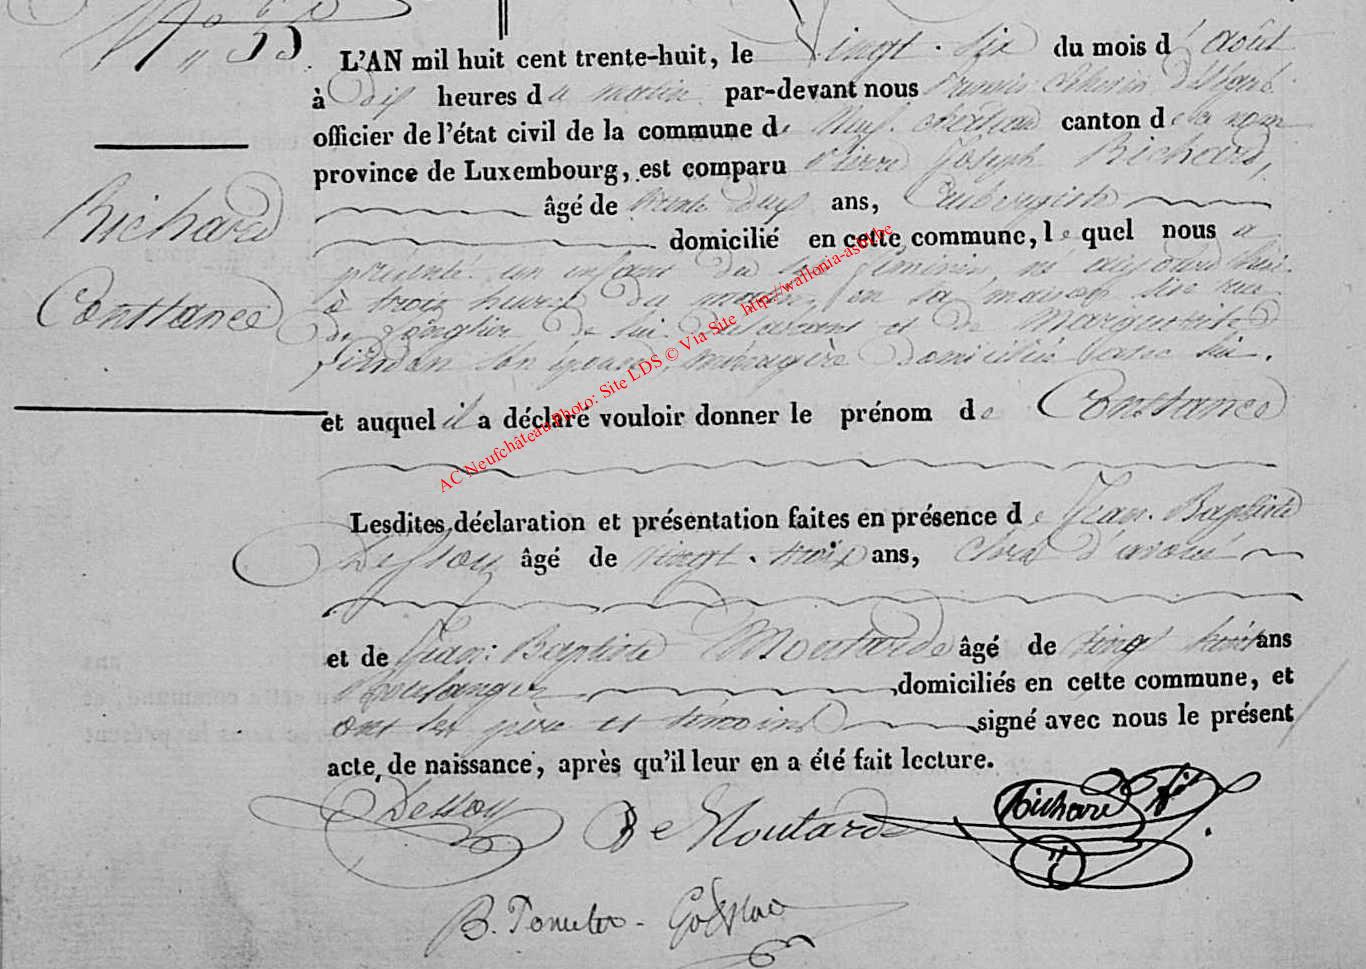 N° 53.
L'AN mil huit cent trente-huit, le vingt-six du mois d'août
à dix heures du matin par-devant nous
officier de l'état civil de la commune de Neufchâteau canton de ce nom
province de Luxembourg, est comparu Pierre Joseph Richard,
âgé de trente deux ans, Aubergiste
domicilié en cette commune, lequel nous a
présenté un enfant du sexe féminin, né aujourd'hui
à trois heures du matin, en sa maison sise rue
de lui déclarant et de Marguerite
son épouse, ménagère domiciliée avec lui.
et auquel il a déclaré vouloir donner le prénom de Constance
Richard
Constance
Lesdites déclaration et présentation faites en présence de Jean-Baptiste
Dessoy âgé de vingt-trois ans, clerc d'avoué
et de Jean-Baptiste Moutarde âgé de vingt huit ans
Boulanger domiciliés en cette commune, et
ont les père et témoins signé avec nous le présent
acte de naissance, après qu'il leur en a été fait lecture.
Dessoy B e Moutarde Richard
AC Neufchâteau Photo: Site LDS © Via Site http//wallonia-asbl.be